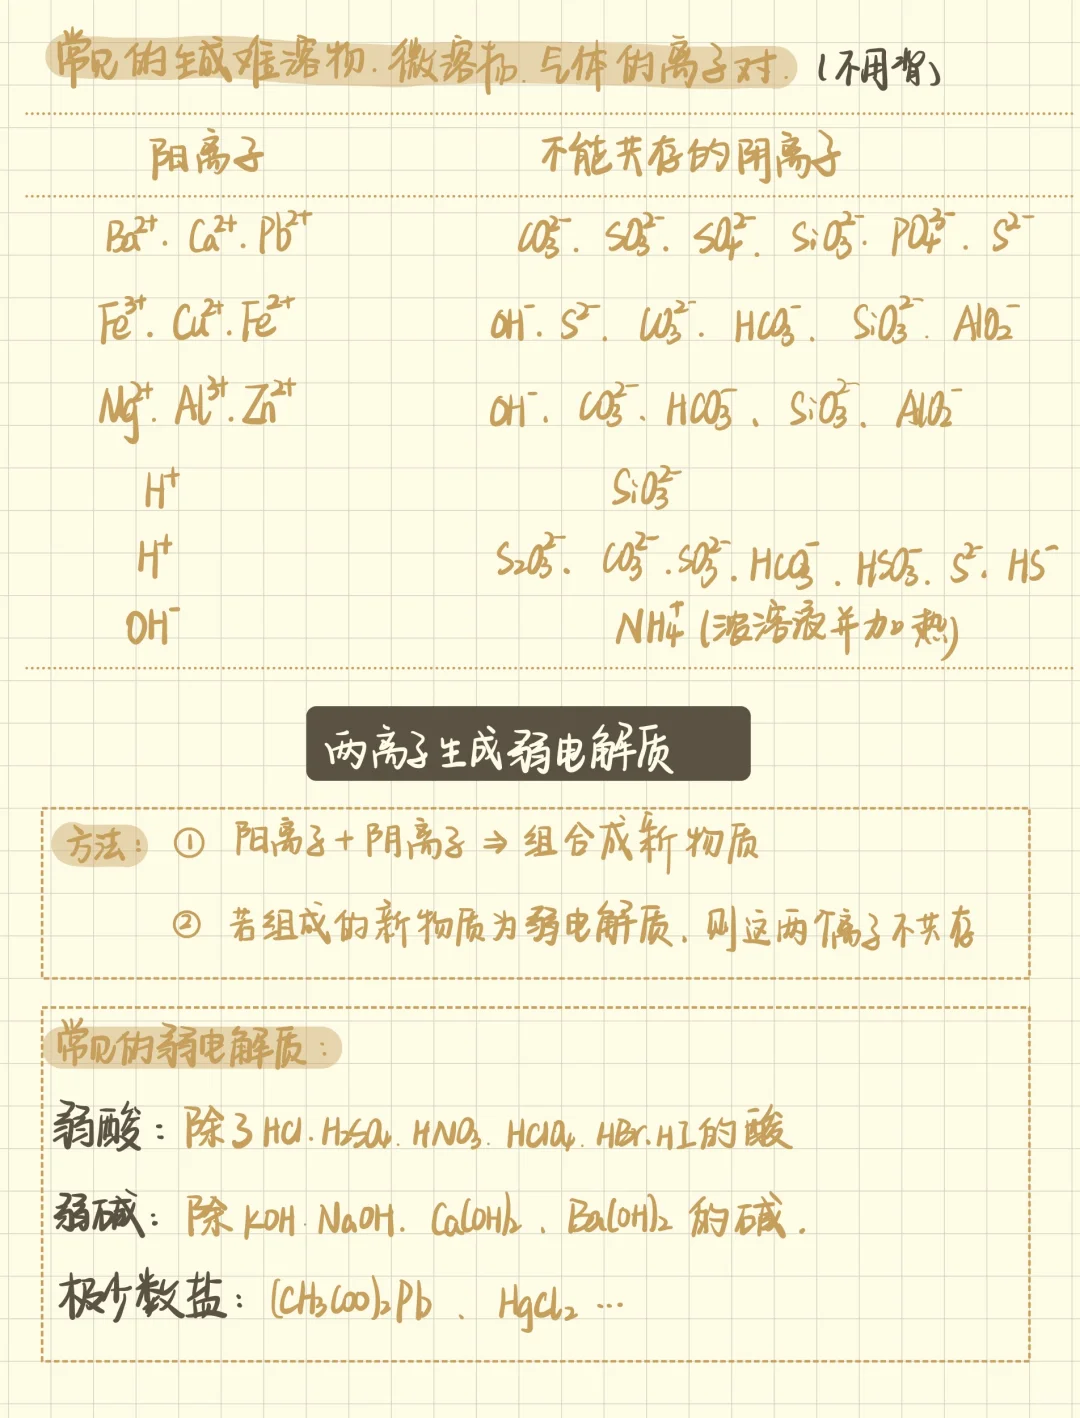 常见的生成难溶物.微溶物.气体的离子对.(不用背)
阳离子 不能共存的阴离子
Ba²⁺. Ca²⁺. Pb²⁺ CO₃²⁻. SO₃²⁻. SO₄²⁻. SiO₃²⁻. PO₄³⁻. S²⁻
Fe³⁺. Cu²⁺. Fe²⁺ OH⁻. S²⁻. CO₃²⁻. HCO₃⁻. SiO₃²⁻. AlO₂⁻
Mg²⁺. Al³⁺. Zn²⁺ OH⁻. CO₃²⁻、HCO₃⁻、SiO₃²⁻、AlO₂⁻
H⁺ SiO₃²⁻
H⁺ S₂O₃²⁻、CO₃²⁻.SO₃²⁻.HCO₃⁻.HSO₃⁻.S²⁻.HS⁻
OH⁻ NH₄⁺(浓溶液并加热)
两离子生成弱电解质
方法: ① 阳离子+阴离子⇒组合成新物质
② 若组成的新物质为弱电解质、则这两个离子不共存
常见的弱电解质:
弱酸: 除了HCl.H₂SO₄.HNO₃.HClO₄.HBr.HI的酸
弱碱: 除KOH.NaOH.Ca(OH)₂、Ba(OH)₂的碱.
极少数盐: (CH₃COO)₂Pb、HgCl₂…